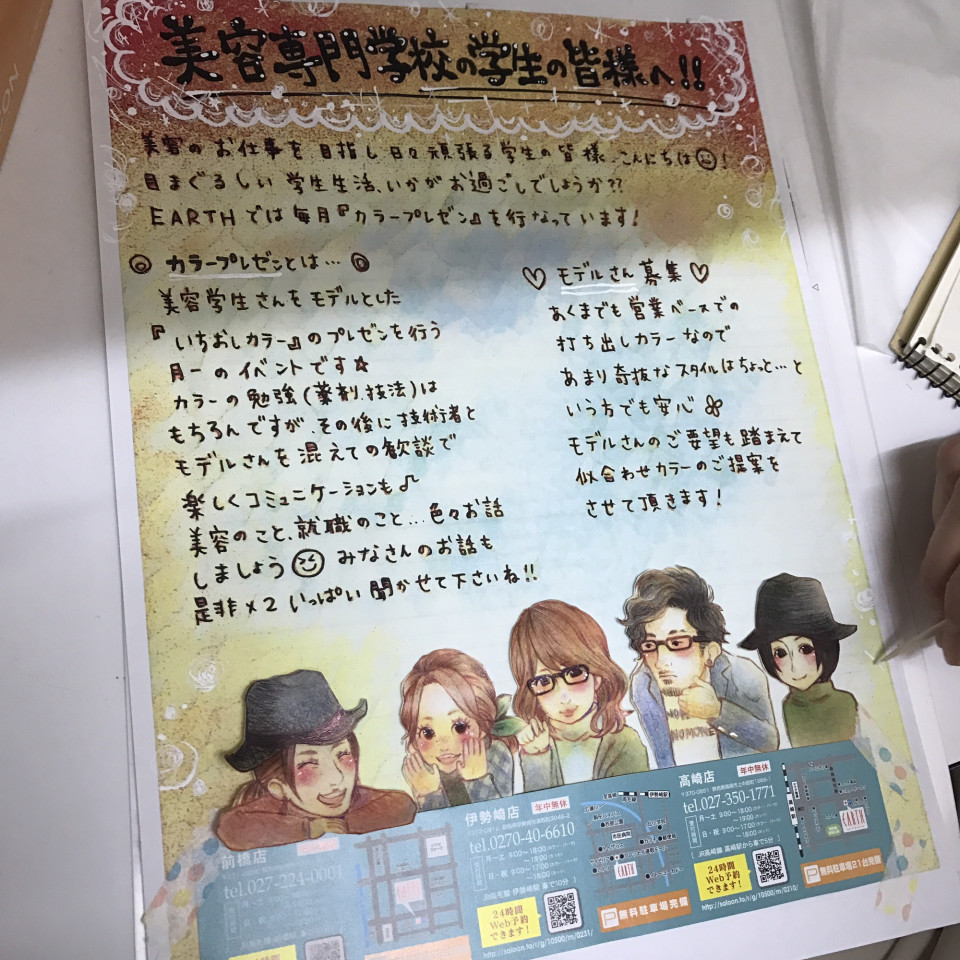 美容専門学校の学生の皆様へ!!
美容のお仕事を目指し日々頑張る学生の皆様、こんにちは!
目まぐるしい学生生活、いかがお過ごしでしょうか??
EARTHでは毎月『カラープレゼン』を行なっています!
◎ カラープレゼンとは… ◎
美容学生さんをモデルとした
『いちおしカラー』のプレゼンを行う
月一のイベントです☆
カラーの勉強(薬剤、技法)は
もちろんですが、その後に技術者と
モデルさんを混えての歓談で
楽しくコミュニケーションも♪
美容のこと、就職のこと…色々お話
しましょう みなさんのお話も
是非×2いっぱい聞かせて下さいね!!
♡ モデルさん募集 ♡
あくまでも営業ベースでの
打ち出しカラーなので
あまり奇抜なスタイルはちょっと…と
いう方でも安心
モデルさんのご要望も踏まえて
似合わせカラーのご提案を
させて頂きます!
NOMORE
前橋店
tel.027-224-00
伊勢崎店 年中無休
tel.0270-40-6610
月〜土 9:00〜18:00
〜19:00
日・祝 9:00〜17:00
〜18:00
JR両毛線 伊勢崎駅 車で10分
24時間
Web予約
できます!
無料駐車場完備
http://saloon.to/i/g/10500/m/0231/
EARTH
高崎店 年中無休
tel.027-350-1771
月〜土 9:00〜18:00
〜19:00
日・祝 9:00〜17:00
〜18:00
JR高崎線 高崎駅から車で5分
24時間
Web予約
できます!
無料駐車場21台完備
http://saloon.to/i/g/10500/m/0210/
EARTH
24時間
Web予約